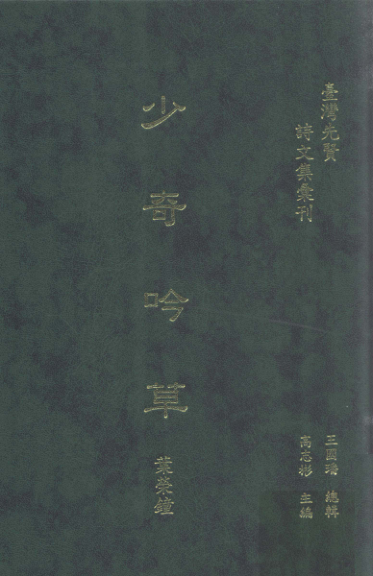 臺灣先賢
詩文集彙刊
少奇吟草
葉榮鐘
王國璠 總輯
高志彬 主編